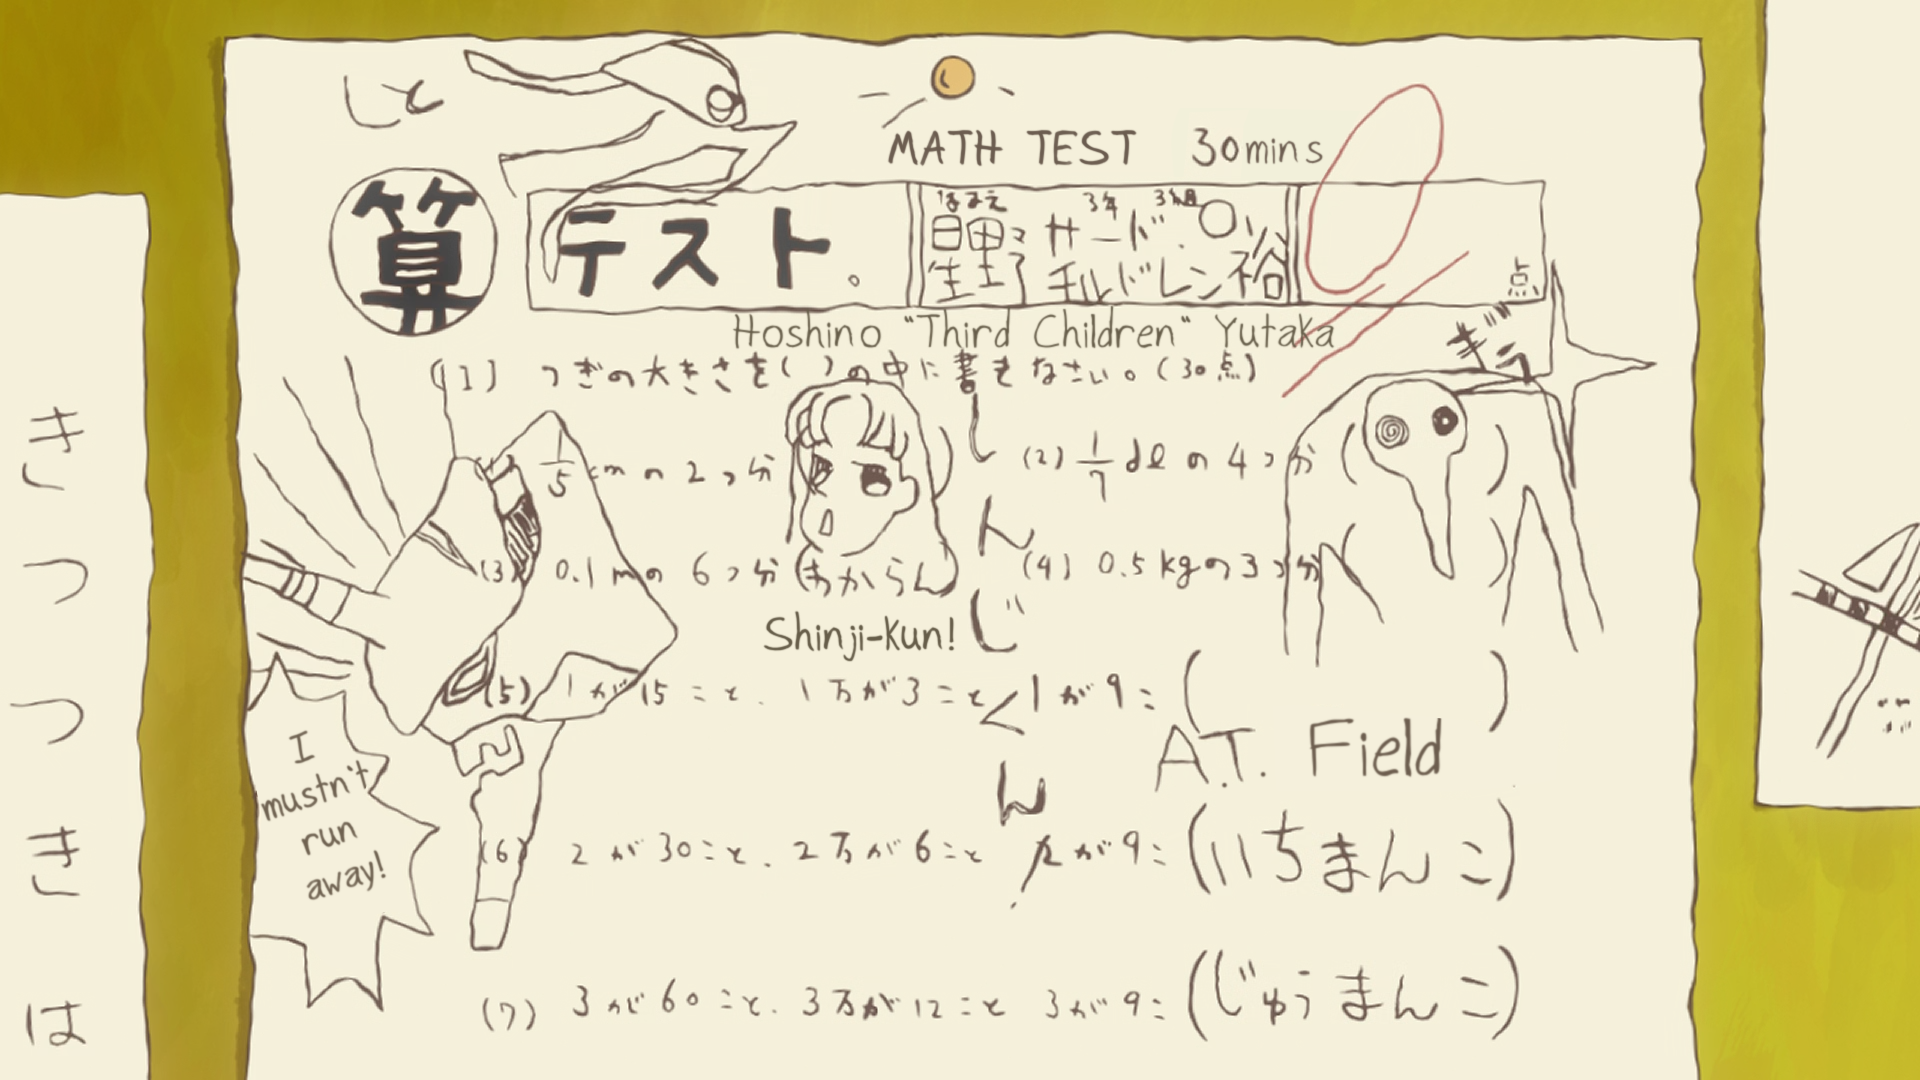 しと
MATH TEST 30mins
算 テスト。
なまえ 3年 3組
星野 サード・チルドレン 裕
点
Hoshino "Third Children" Yutaka
(1) つぎの大きさを( )の中に書きなさい。(30点)
ギラ
1/5 cmの2つ分
(2) 1/7 dlの4つ分
(3) 0.1mの6つ分 (わからん)
(4) 0.5kgの3つ分
Shinji-Kun!
しんじくん!
(5) 1が15こと、1万が3こと 1が9こ ( )
A.T. Field
I
mustn't
run
away!
(6) 2が30こと、2万が6こと 2が9こ (いちまんこ)
(7) 3が60こと、3万が12こと 3が9こ (じゅうまんこ)
きつつきは